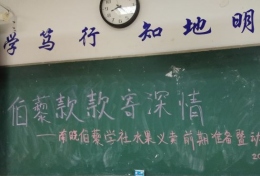 学 笃 行 知 地 明
伯藜款款寄深情
——南旺伯藜学社水果义卖前期准备暨动
20